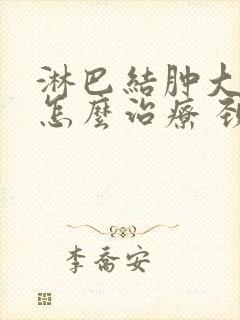 淋巴結肿大
怎麼治療 頚
李喬安